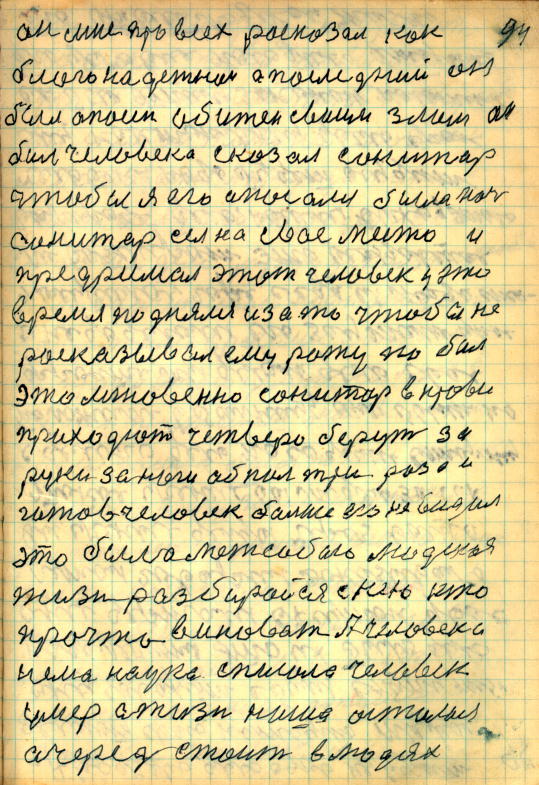 он мне про всех росказал как 94
благонадежнои а последний он
был опоен обижен своим злом он
бил человека сказал сонитар
чтобы я его описали была ноч
сонитар сел на свое место и
предримал этот человек у это
время поднялся за то чтобы не
росказывал ему рожу по бил
это мгновенно сонитар в крови
приходют четверо берут за
руки за ноги об пол три раза и
готов человек болше его не видил
это была межсобою людская
жизн разбирайся с нею кто
прочто виноват А человека
нема наука списала человек
умер а жизн наша осталас
очеред стоит в людях